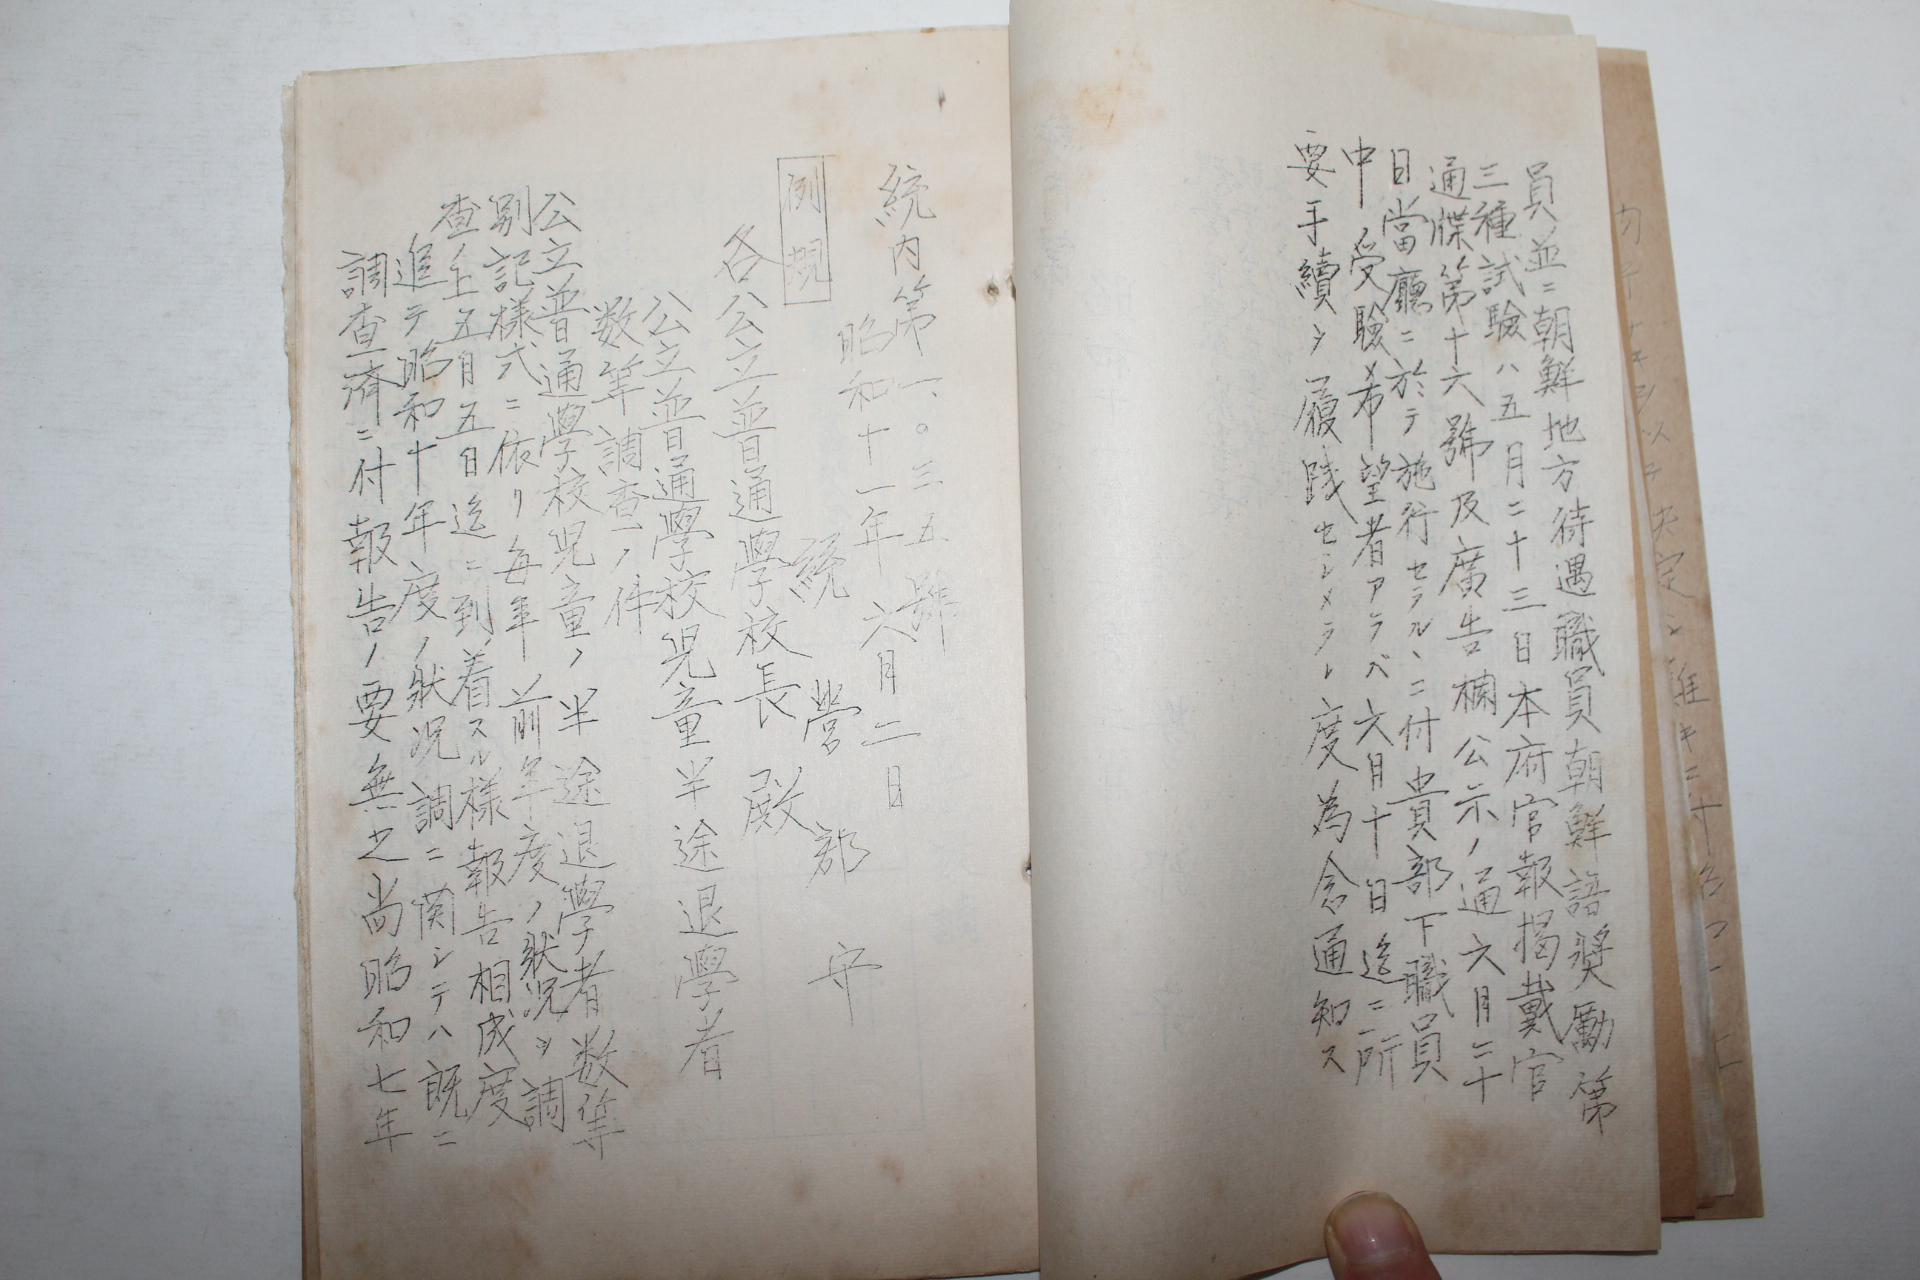 員並ニ朝鮮地方待遇職員朝鮮語奬勵第
三種試驗ハ五月二十三日本府官報揭戴官
通牒第十六號及廣告欄公示ノ通六月二十
日當廳ニ於テ施行セラルヽニ付貴部下職員
中受驗希望者アラバ六月十日迄ニ所
要手續ヲ履踐セシメラレ度為念通知ス
統內第一〇三五號
昭和十一年六月二日
統營郡守
例規
各公立普通學校長殿
公立普通學校児童半途退學者
数等調査ノ件
公立普通學校児童ノ半途退學者数等
別記樣式ニ依リ每年前年度ノ狀況ヲ調
査ノ上五月五日迄ニ到着スル樣報告相成度
追テ昭和十年度ノ狀況調ニ関シテハ既ニ
調査済ニ付報告ノ要無之尚昭和七年